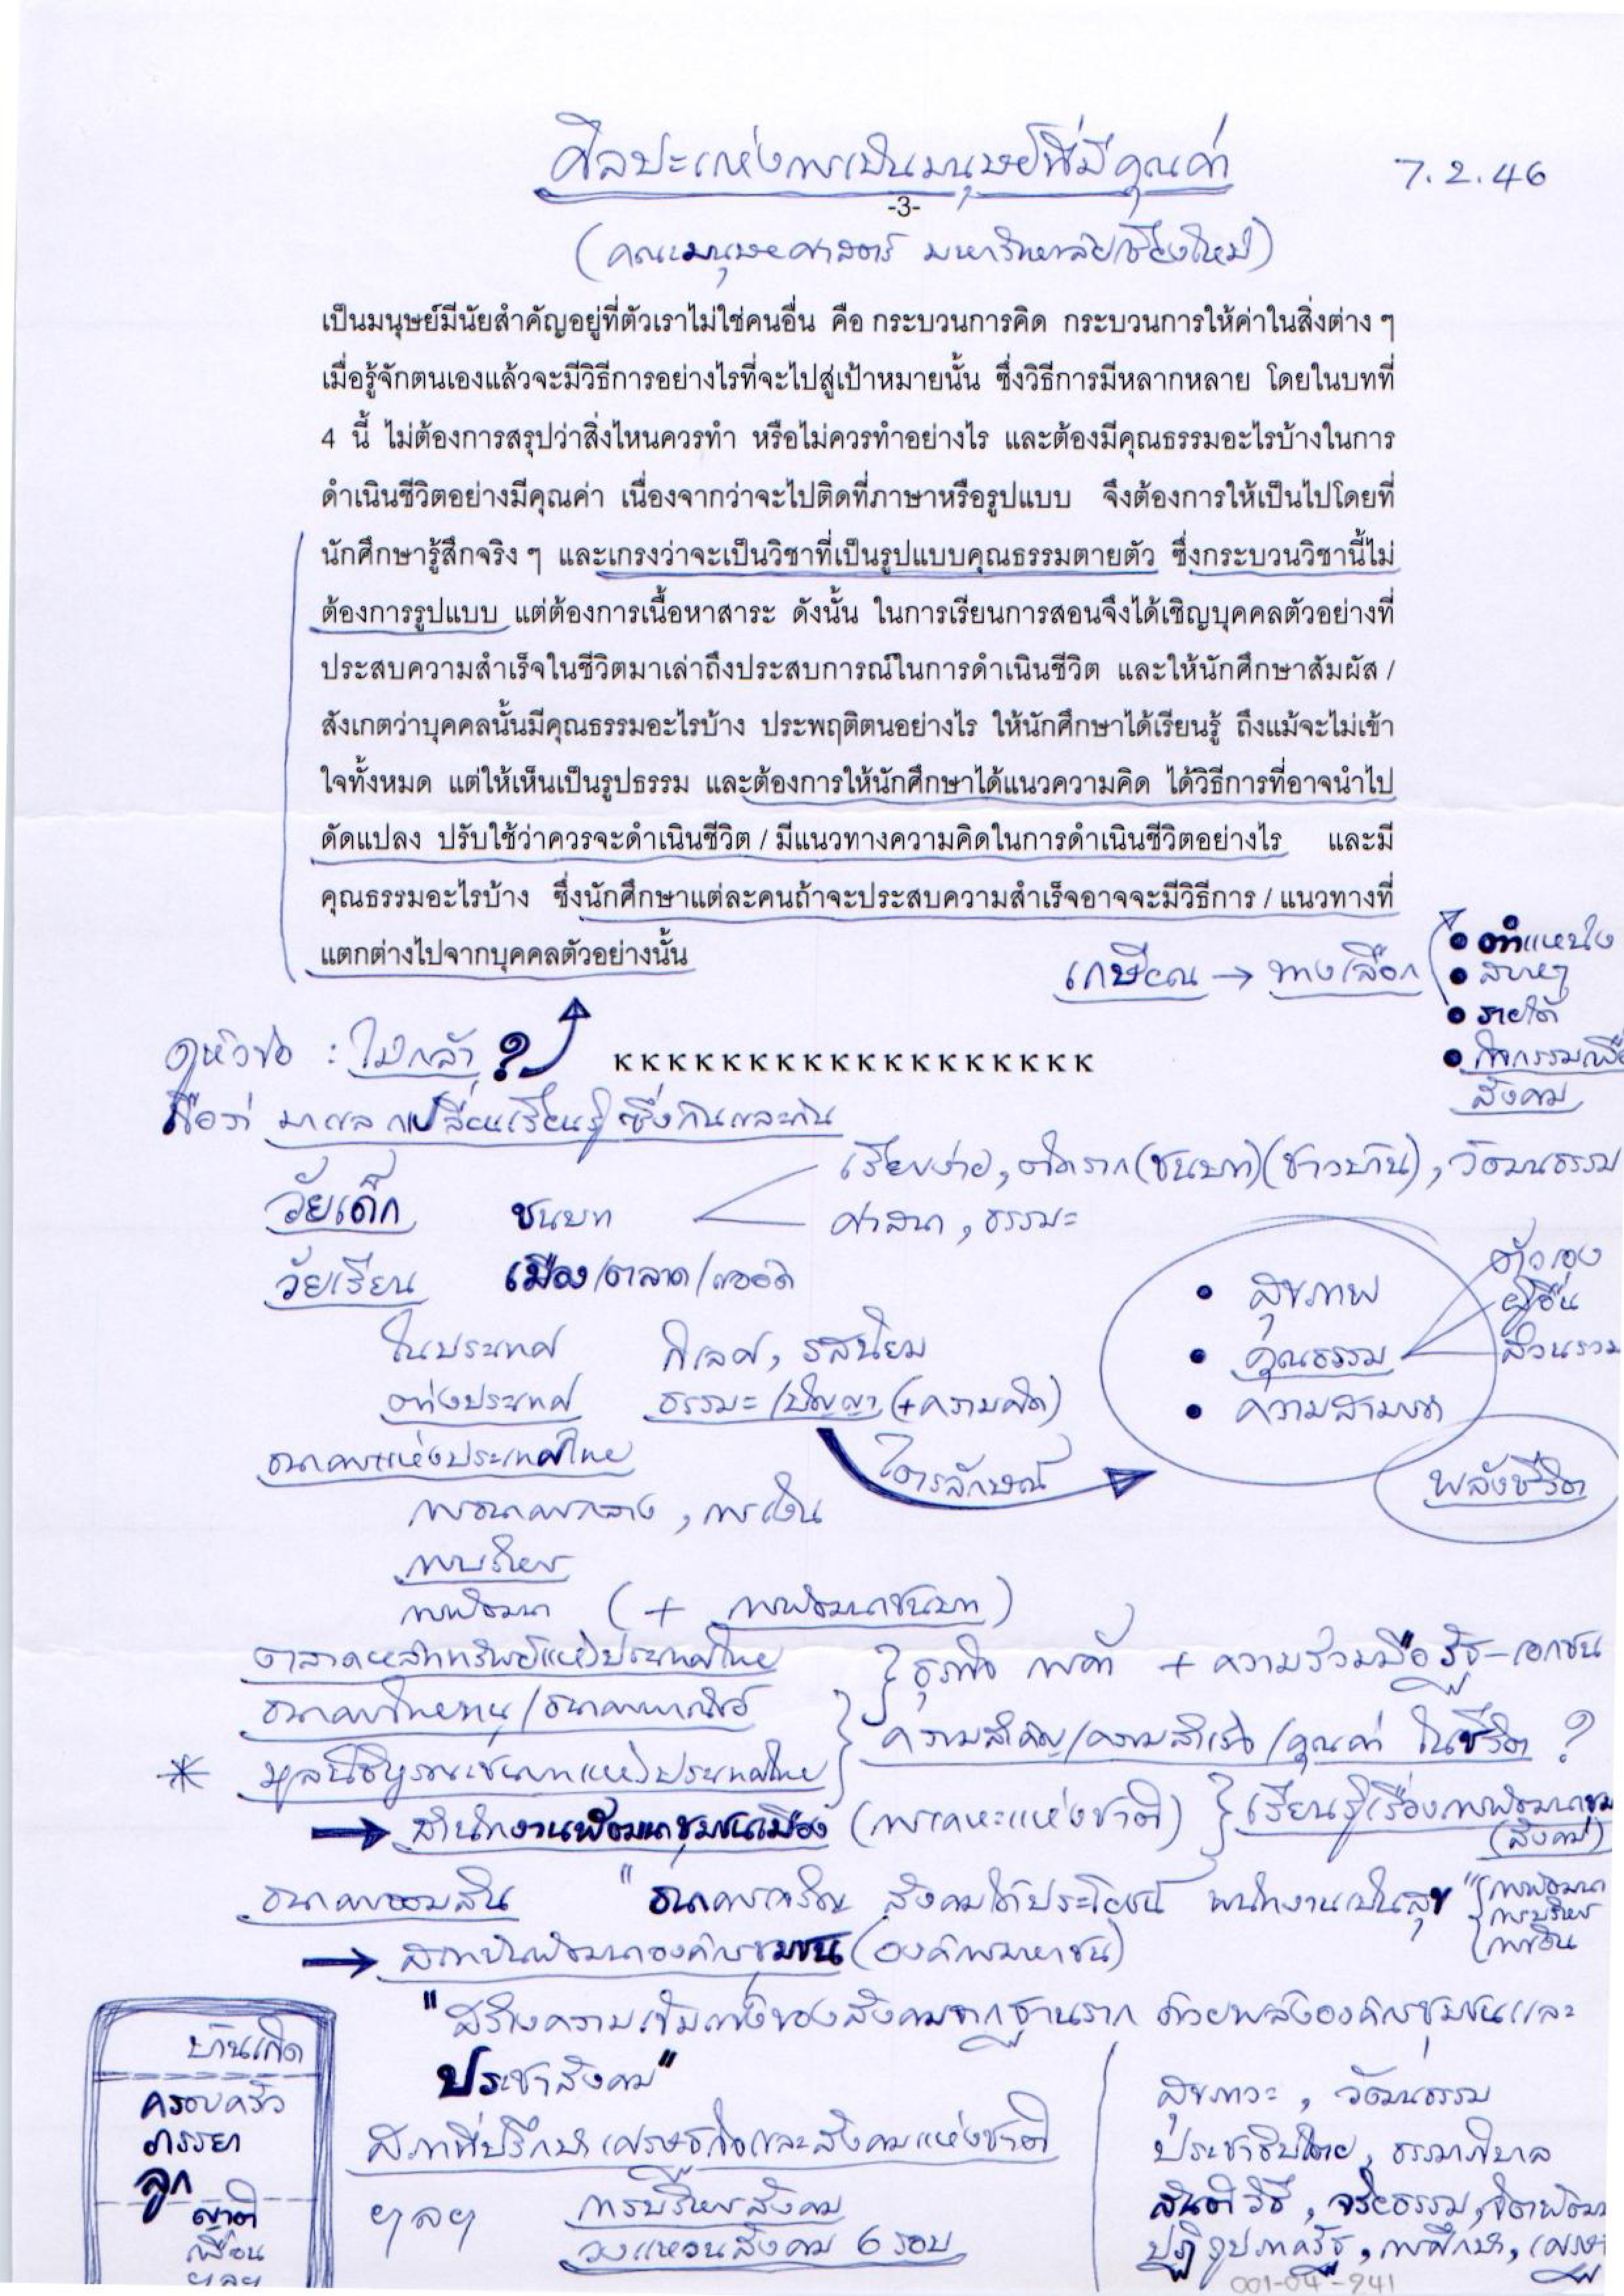 ศิลปะแห่งการเป็นมนุษย์ที่มีคุณค่า 7.2.46
-3-
(คณะมนุษยศาสตร์ มหาวิทยาลัยเชียงใหม่)
เป็นมนุษย์มีนัยสำคัญอยู่ที่ตัวเราไม่ใช่คนอื่น คือ กระบวนการคิด กระบวนการให้ค่าในสิ่งต่าง ๆ
เมื่อรู้จักตนเองแล้วจะมีวิธีการอย่างไรที่จะไปสู่เป้าหมายนั้น ซึ่งวิธีการมีหลากหลาย โดยในบทที่
4 นี้ ไม่ต้องการสรุปว่าสิ่งไหนควรทำ หรือไม่ควรทำอย่างไร และต้องมีคุณธรรมอะไรบ้างในการ
ดำเนินชีวิตอย่างมีคุณค่า เนื่องจากว่าจะไปติดที่ภาษาหรือรูปแบบ จึงต้องการให้เป็นไปโดยที่
นักศึกษารู้สึกจริง ๆ และเกรงว่าจะเป็นวิชาที่เป็นรูปแบบคุณธรรมตายตัว ซึ่งกระบวนวิชานี้ไม่
ต้องการรูปแบบ แต่ต้องการเนื้อหาสาระ ดังนั้น ในการเรียนการสอนจึงได้เชิญบุคคลตัวอย่างที่
ประสบความสำเร็จในชีวิตมาเล่าถึงประสบการณ์ในการดำเนินชีวิต และให้นักศึกษาสัมผัส /
สังเกตว่าบุคคลนั้นมีคุณธรรมอะไรบ้าง ประพฤติตนอย่างไร ให้นักศึกษาได้เรียนรู้ ถึงแม้จะไม่เข้า
ใจทั้งหมด แต่ให้เห็นเป็นรูปธรรม และต้องการให้นักศึกษาได้แนวความคิด ได้วิธีการที่อาจนำไป
ดัดแปลง ปรับใช้ว่าควรจะดำเนินชีวิต / มีแนวทางความคิดในการดำเนินชีวิตอย่างไร และมี
คุณธรรมอะไรบ้าง ซึ่งนักศึกษาแต่ละคนถ้าจะประสบความสำเร็จอาจจะมีวิธีการ / แนวทางที่
แตกต่างไปจากบุคคลตัวอย่างนั้น
เกษียณ → ทางเลือก
• ตำแหน่ง
•
• รายได้
• กิจกรรมเพื่อ
สังคม
ดูหัวข้อ : ไม่กล้า ?
ĸĸĸĸĸĸĸĸĸĸĸĸĸĸĸĸĸĸ
ถือว่า มาแลกเปลี่ยนเรียนรู้ซึ่งกันและกัน
วัยเด็ก ชนบท
เรียบง่าย, ติดราก (ชนบท) (ชาวบ้าน), วัฒนธรรม
ศาสนา, ธรรมะ
วัยเรียน เมือง/ตลาด/
ในประเทศ กิเลส, รสนิยม
ต่างประเทศ ธรรมะ/ปัญญา (+ความคิด)
ไตรลักษณ์
• สุขภาพ
• คุณธรรม
• ความสามารถ
ตัวเอง
ผู้อื่น
ส่วนรวม
พลังชีวิต
ธนาคารแห่งประเทศไทย
การธนาคารกลาง, การเงิน
การบริหาร
การพัฒนา (+ การพัฒนาชนบท)
ตลาดหลักทรัพย์แห่งประเทศไทย
ธุรกิจ การค้า + ความร่วมมือรัฐ-เอกชน
ธนาคารไทยทนุ/ธนาคารพาณิชย์
ความสำคัญ/ความสำเร็จ/คุณค่า ในชีวิต ?
* มูลนิธิบูรณะชนบทแห่งประเทศไทย
→ สำนักงานพัฒนาชุมชนเมือง (การเคหะแห่งชาติ) } เรียนรู้เรื่องการพัฒนาชุม
(สังคม)
ธนาคารออมสิน "ธนาคารเจริญ สังคมได้ประโยชน์ พนักงานเป็นสุข"
การพัฒนา
การบริหาร
→ สถาบันพัฒนาองค์กรชุมชน (องค์การมหาชน)
"สร้างความเข้มแข็งของสังคมจากฐานราก ด้วยพลังองค์กรชุมชนและ
ประชาสังคม"
สภาที่ปรึกษาเศรษฐกิจและสังคมแห่งชาติ
ฯลฯ การบริหารสังคม
วงแหวนสังคม 6 รอบ
บ้านเกิด
ครอบครัว
ภรรยา
ลูก
ญาติ
เพื่อน
ฯลฯ
สุขภาวะ, วัฒนธรรม
ประชาธิปไตย, ธรรมาภิบาล
สันติวิธี, จริยธรรม, จิตพัฒนา
ปฏิรูปภาครัฐ, การศึกษา, เศรษ
001-04-241